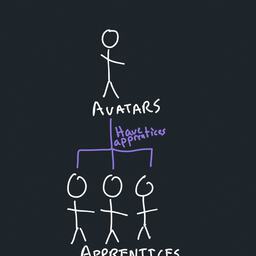 AVATARS
Have
apprentices
APPRENTICES